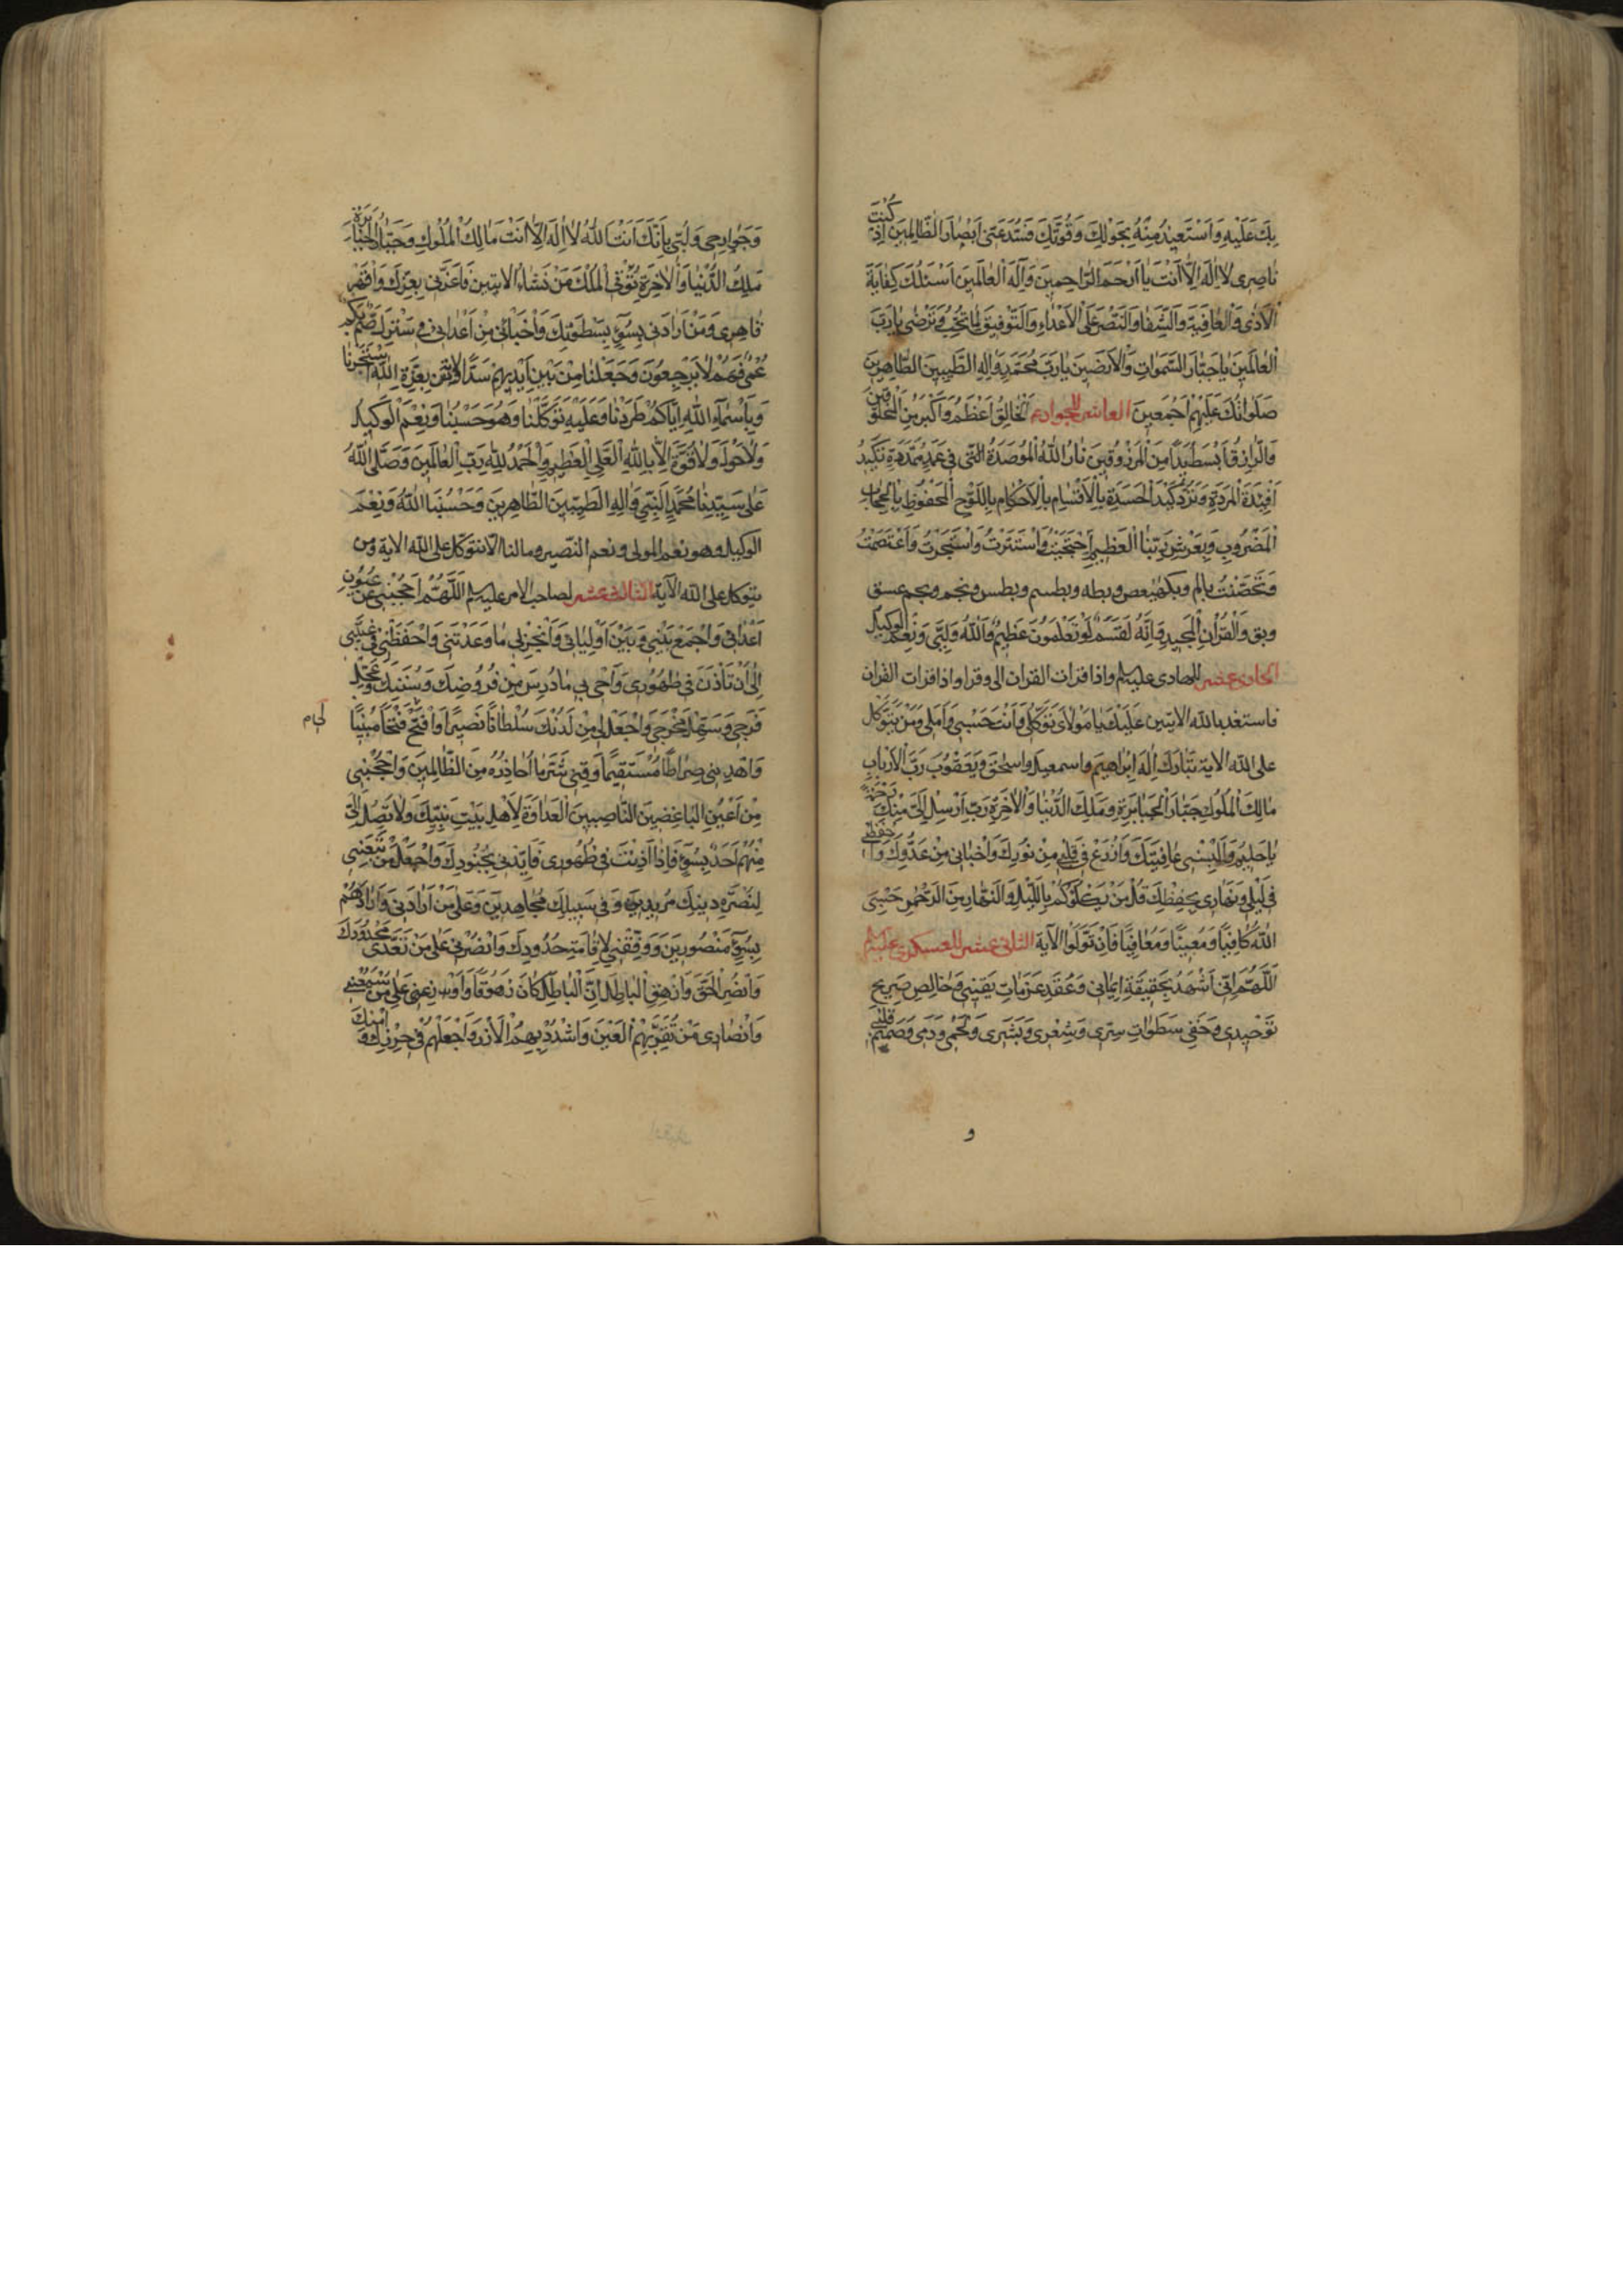 بِكَ عَلَيْهِ وَاَسْتَعِيذُ مِنْهُ بِحَوْلِكَ وَقُوَّتِكَ فَسُدَّ عَنّى اَبْصٰارَ الظّٰالِمينَ اِذْ كُنْتَ
نٰاصِرى لاٰ اِلٰهَ اِلاّٰ اَنْتَ يٰا اَرْحَمَ الرّٰاحِمينَ وَاِلٰهَ الْعٰالَمينَ اَسْئَلُكَ كِفٰايَةَ
الْاَذٰى وَالْعٰافِيَةَ وَالشِّفٰا وَالنَّصْرَ عَلَى الْاَعْدٰاءِ وَالتَّوْفيقَ لِمٰا تُحِبُّ وَتَرْضٰى يٰا رَبَّ
الْعٰالَمينَ يٰا جَبّٰارَ السَّمٰوٰاتِ وَالْاَرَضينَ يٰا رَبَّ مُحَمَّدٍ وَاٰلِهِ الطَّيِّبينَ الطّٰاهِرينَ
صَلَوٰاتُكَ عَلَيْهِمْ اَجْمَعينَ العاشر للجواد ع اَلْخٰالِقُ اَعْظَمُ وَاَكْبَرُ مِنَ الْمَخْلُوقينَ
وَالرّٰازِقُ اَبْسَطُ يَدًا مِنَ الْمَرْزُوقينَ نٰارُ اللّٰهِ الْمُوصَدَةُ الَّتى فى عَمَدٍ مُمَدَّدَةٍ تَكيدُ
اَفْئِدَةَ الْمَرَدَةِ وَتَرُدُّ كَيْدَ الْحَسَدَةِ بِالْاَقْسٰامِ بِالْاَحْكٰامِ بِاللَّوْحِ الْمَحْفُوظِ بِالْحِجٰابِ
الْمَضْرُوبِ وَبِعَرْشِ رَبِّنَا الْعَظيمِ اِحْتَجَبْتُ وَاسْتَتَرْتُ وَاسْتَجَرْتُ وَاعْتَصَمْتُ
وَتَحَصَّنْتُ بالم وبكهيعص وبطه وبطسم وبطس وبحم وبحمعسق
وبق وَالْقُرْاٰنِ الْمَجيدِ وَاِنَّهُ لَقَسَمٌ لَوْ تَعْلَمُونَ عَظيمٌ وَاللّٰهُ وَلِيّى وَنِعْمَ الْوَكيلُ
الحادى عشر للهادى عليه السلم واذا قرات القران الى وقرا واذا قرات القران
فاستعذ بالله الايتين عَلَيْكَ يٰا مَوْلاٰىَ تَوَكُّلى وَاَنْتَ حَسْبى وَاَمَلى وَمَنْ يَتَوَكَّلْ
على الله الاية تَبٰارَكَ اِلٰهُ اِبْرٰاهيمَ وَاسمعيل واسحٰقَ وَيَعْقُوبَ رَبُّ الْاَرْبٰابِ
مٰالِكُ الْمُلُوكِ جَبّٰارُ الْجَبٰابِرَةِ وَمَلِكُ الدُّنْيٰا وَالْاٰخِرَةِ رَبِّ اَرْسِلْ اِلَىَّ مِنْكَ رَحْمَةً
يٰا حَليمُ وَاَلْبِسْنى عٰافِيَتَكَ وَازْرَعْ فى قَلْبى مِنْ نُورِكَ وَاخْبٰانى مِنْ عَدُوِّكَ وَاحْفَظْنى
فى لَيْلى وَنَهٰارى بِحِفْظِكَ قُلْ مَنْ يَكْلَؤُكُمْ بِاللَّيْلِ وَالنَّهٰارِ مِنَ الرَّحْمٰنِ حَسْبِىَ
اللّٰهُ كٰافِيًا وَمُعينًا وَمُعٰافِيًا فَاِنْ تَوَلَّوْا الاٰية الثانى عشر للعسكرى عليه السلم
اَللّٰهُمَّ اِنّى اَشْهَدُ بِحَقيقَةِ ايمٰانى وَعَقْدِ عَزَمٰاتِ يَقينى وَخٰالِصِ صَريحِ
تَوْحيدى وَخَفِىِّ سَطَوٰاتِ سِرّى وَشَعْرى وَبَشَرى وَلَحْمى وَدَمى وَصَميمِ قَلْبى
و
وَجَوٰارِحى وَلُبّى بِاَنَّكَ اَنْتَ اللّٰهُ لاٰ اِلٰهَ اِلاّٰ اَنْتَ مٰالِكُ الْمُلُوكِ وَجَبّٰارُ الْجَبٰابِرَةِ
مَلِكُ الدُّنْيٰا وَالْاٰخِرَةِ تُؤْتِى الْمُلْكَ مَنْ تَشٰاءُ الايتين فَاَعِزَّنى بِعِزِّكَ وَاقْهَرْ
قٰاهِرى وَمَنْ اَرٰادَنى بِسُوٓءٍ بِسَطْوَتِكَ وَاخْبٰانى مِنْ اَعْدٰائى فى سَتْرِكَ صُمٌّ بُكْمٌ
عُمْىٌ فَهُمْ لاٰ يَرْجِعُونَ وَجَعَلْنٰا مِنْ بَيْنِ اَيْدِيهِمْ سَدًّا الايتين بِعِزَّةِ اللّٰهِ اسْتَجَرْنٰا
وَبِاَسْمٰاءِ اللّٰهِ اِيّٰاكُمْ طَرَدْنٰا وَعَلَيْهِ تَوَكَّلْنٰا وَهُوَ حَسْبُنٰا وَنِعْمَ الْوَكيلُ
وَلاٰ حَوْلَ وَلاٰ قُوَّةَ اِلاّٰ بِاللّٰهِ الْعَلِىِّ الْعَظيمِ وَالْحَمْدُ لِلّٰهِ رَبِّ الْعٰالَمينَ وَصَلَّى اللّٰهُ
عَلٰى سَيِّدِنٰا مُحَمَّدٍ النَّبِىِّ وَاٰلِهِ الطَّيِّبينَ الطّٰاهِرينَ وَحَسْبُنَا اللّٰهُ وَنِعْمَ
الوكيل وهو نعم المولى ونعم النصير ومالنا الا نتوكل على الله الاية ومن
يتوكل على الله الآية الثالث عشر لصاحب الامر عليه السلم اَللّٰهُمَّ احْجُبْنى عَنْ عُيُونِ
اَعْدٰائى وَاجْمَعْ بَيْنى وَبَيْنَ اَوْلِيٰائى وَاَنْجِزْ لى مٰا وَعَدْتَنى وَاحْفَظْنى فى غَيْبَتى
اِلٰى اَنْ تَاْذَنَ فى ظُهُورى وَاَحْىِ بى مٰا دُرِسَ مِنْ فُرُوضِكَ وَسُنَنِكَ وَعَجِّلْ
فَرَجى وَسَهِّلْ مَخْرَجى وَاجْعَلْ لى مِنْ لَدُنْكَ سُلْطٰانًا نَصيرًا وَافْتَحْ فَتْحًا مُبينًا
وَاهْدِنى صِرٰاطًا مُسْتَقيمًا وَقِنى شَرَّ مٰا اُحٰاذِرُهُ مِنَ الظّٰالِمينَ وَاحْجُبْنى
مِنْ اَعْيُنِ الْبٰاغِضينَ النّٰاصِبينَ الْعَدٰاوَةَ لِاَهْلِ بَيْتِ نَبِيِّكَ وَلاٰ تَصِلُ اِلَىَّ
مِنْهُمْ اَحَدٌ بِسُوٓءٍ فَاِذٰا اَذِنْتَ فى ظُهُورى فَاَيِّدْنى بِجُنُودِكَ وَاجْعَلْ مَنْ تَبِعَنى
لِنُصْرَةِ دينِكَ مُريدينَ وَفى سَبيلِكَ مُجٰاهِدينَ وَعَلٰى مَنْ اَرٰادَنى وَاَرٰادَهُمْ
بِسُوٓءٍ مَنْصُورينَ وَوَفِّقْنى لِاِقٰامَةِ حُدُودِكَ وَانْصُرْنى عَلٰى مَنْ تَعَدّٰى مَحْدُودَكَ
وَانْصُرِ الْحَقَّ وَازْهِقِ الْبٰاطِلَ اِنَّ الْبٰاطِلَ كٰانَ زَهُوقًا وَاَوْرِدْ عَلَىَّ مِنْ شيعَتى
وَاَنْصٰارى مَنْ تَقَرُّ بِهِمُ الْعَيْنُ وَاشْدُدْ بِهِمُ الْاَزْرَ وَاجْعَلْهُمْ فى حِرْزِكَ وَاَمْنِكَ